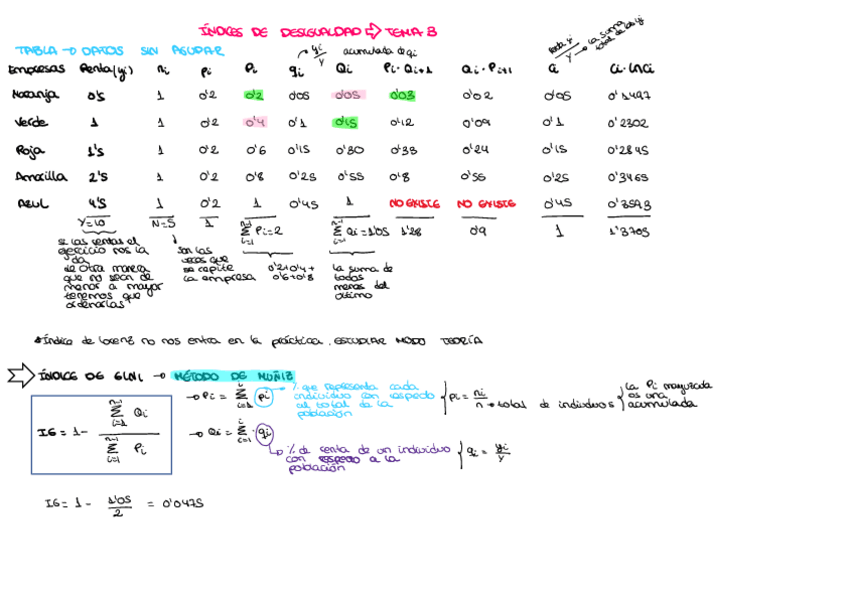 ÍNDICES DE DESIGUALDAD ⇒ TEMA 3
TABLA → DATOS SIN AGRUPAR
→ yi/Y
acumulada de qi
Y → la suma total de las yi
Empresas Renta(yi) ni pi Pi qi Qi Pi·Qi+1 Qi·Pi+1 ci ci·lnci
Naranja 0'5 1 0'2 0'2 0'05 0'05 0'03 0'02 0'05 0'1497
Verde 1 1 0'2 0'4 0'1 0'15 0'12 0'09 0'1 0'2302
Roja 1'5 1 0'2 0'6 0'15 0'30 0'33 0'24 0'15 0'2845
Amarilla 2'5 1 0'2 0'8 0'25 0'55 0'8 0'55 0'25 0'3465
Azul 4'5 1 0'2 1 0'45 1 NO EXISTE NO EXISTE 0'45 0'3593
Y=10 N=5 1 n-1 Σ i=1 Pi=2 n-1 Σ i=1 Qi=1'05 1'28 0'9 1 1'3705
si las rentas el
ejercicio nos la
da
de otra manera
que no sean de
menor a mayor
tenemos que
ordenarlas
son las
veces que
se repite
la empresa
0'2+0'4+
0'6+0'8
la suma de
todos
menos del
último
*Índice de Lorenz no nos entra en la práctica. ESTUDIAR MODO TEORÍA
⇒ ÍNDICE DE GINI → MÉTODO DE MUÑIZ
IG = 1 - n-1 Σ i=1 Qi / n-1 Σ i=1 Pi
→ Pi = i Σ i=1 pi
→ % que representa cada
individuo con respecto
al total de la
población
pi = ni/n → total de individuos
la Pi mayúscula
es una
acumulada
→ Qi = i Σ i=1 qi
→ % de renta de un individuo
con respecto a la
población
qi = yi/Y
IG = 1 - 1'05/2 = 0'0475